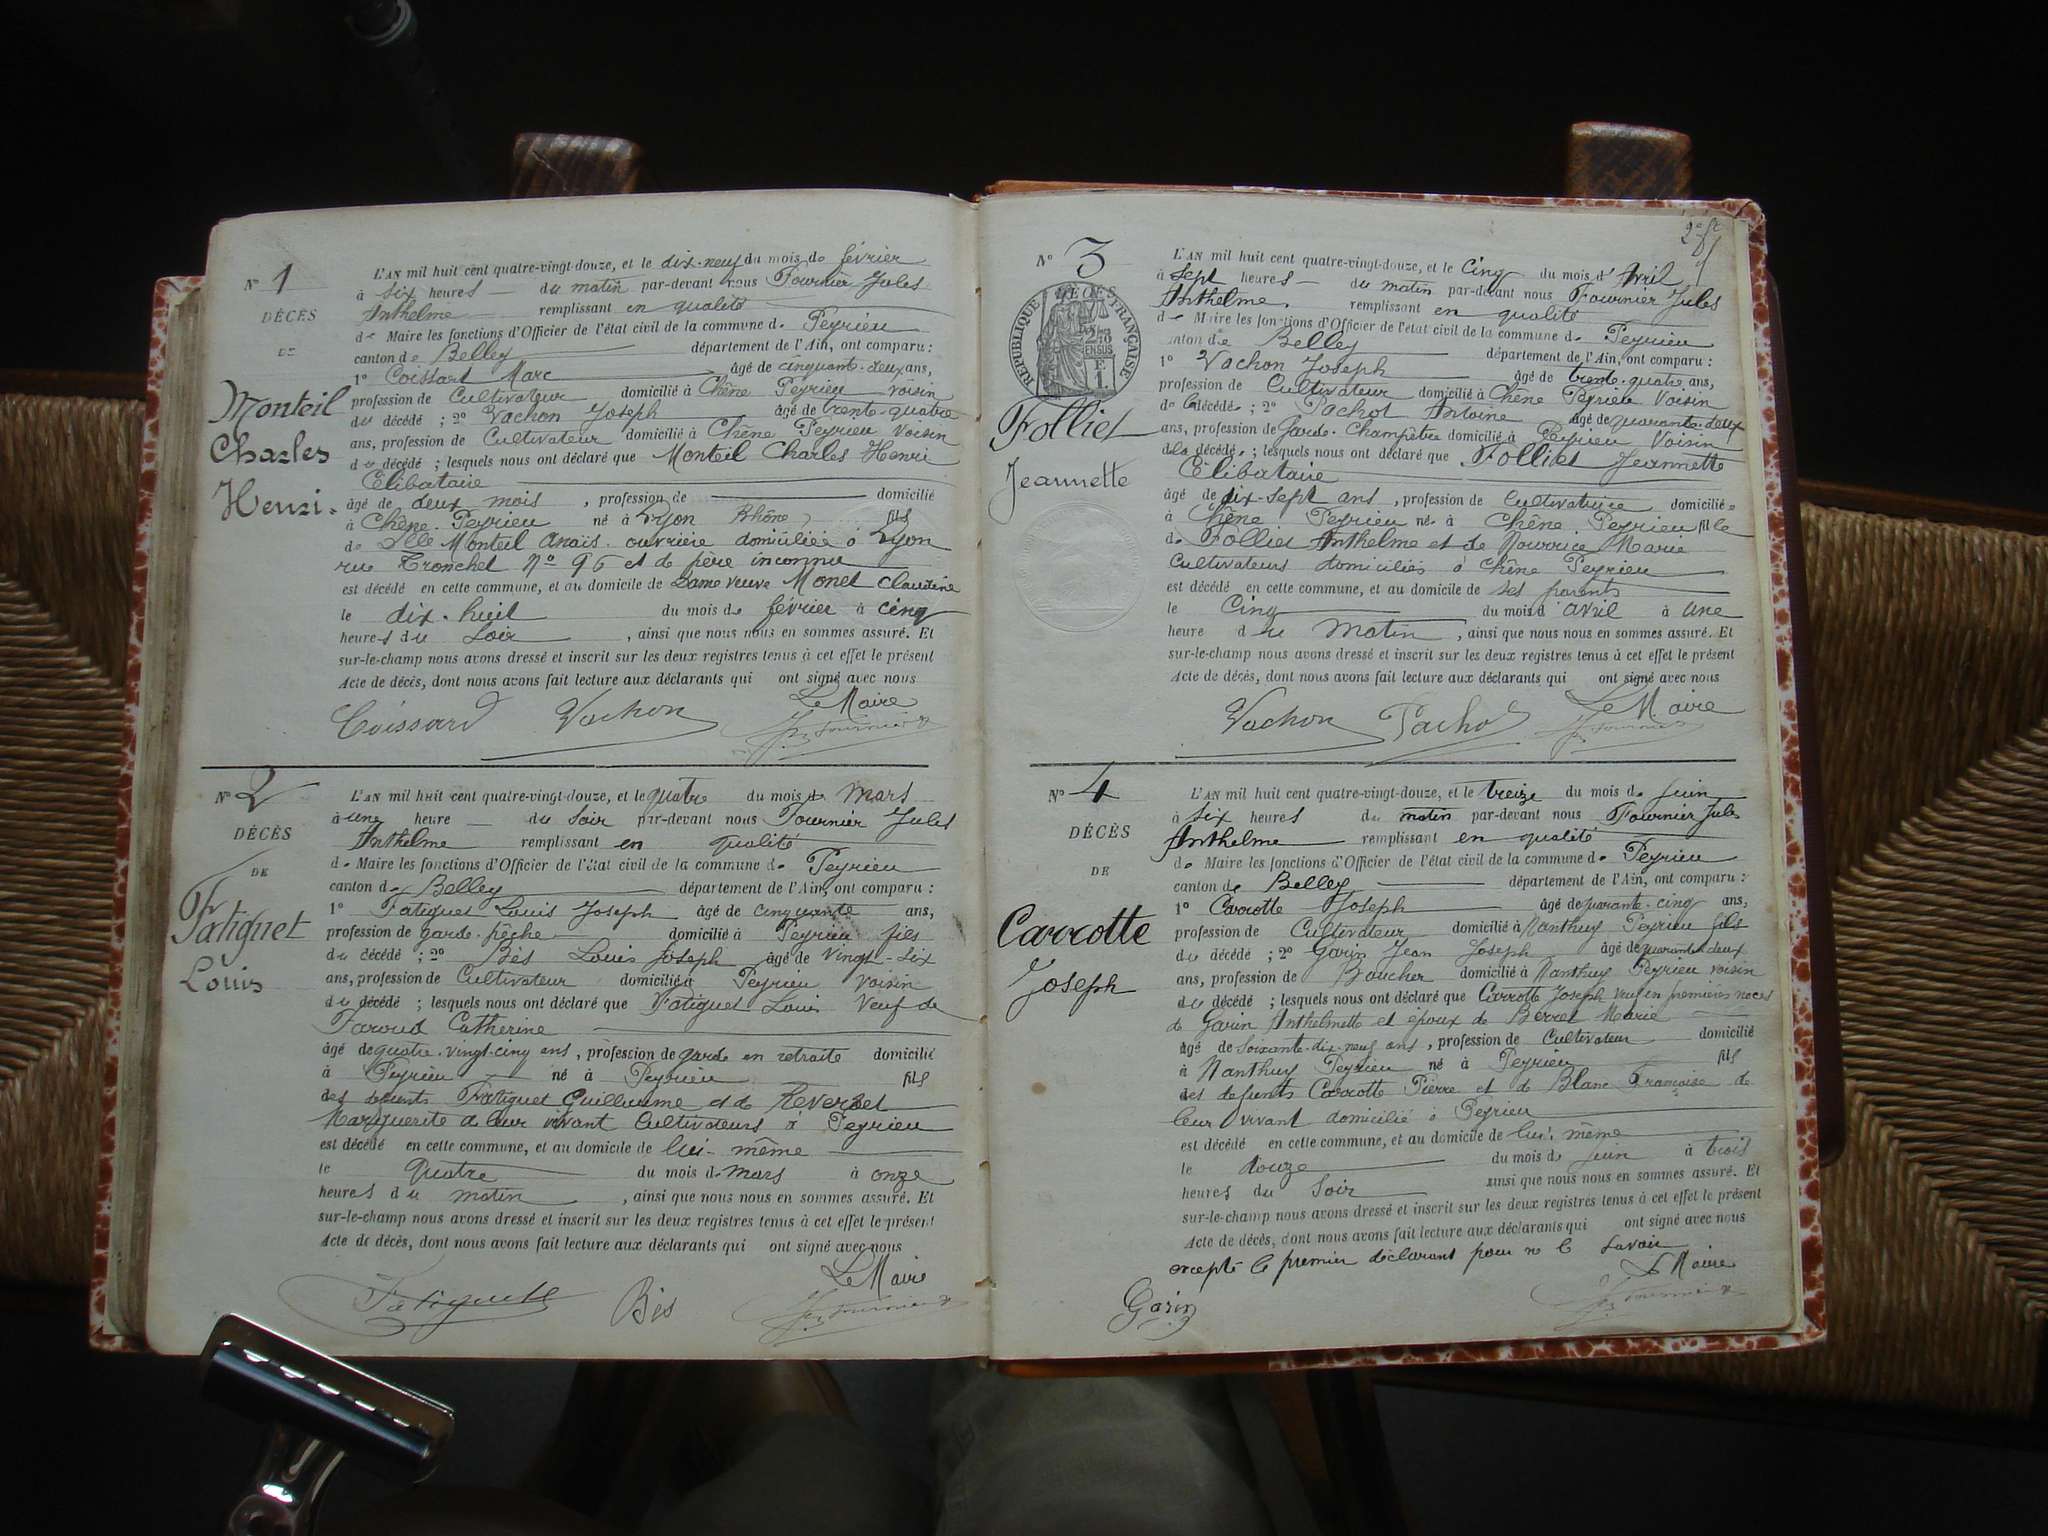 N° 1
DÉCÈS
DE
Monteil
Charles
Henri.
L'AN mil huit cent quatre-vingt-douze, et le dix-neuf du mois de février
à six heures du matin par-devant nous Fournier Jules
Anthelme remplissant en qualité
de Maire les fonctions d'Officier de l'état civil de la commune de Peyrieu
canton de Belley département de l'Ain, ont comparu :
1° Coissart Marc âgé de cinquante-deux ans,
profession de Cultivateur domicilié à Chêne Peyrieu voisin
du décédé ; 2° Vachon Joseph âgé de trente-quatre
ans, profession de Cultivateur domicilié à Chêne Peyrieu Voisin
du décédé ; lesquels nous ont déclaré que Monteil Charles Henri
Célibataire
âgé de deux mois , profession de domicilié
à Chêne Peyrieu né à Lyon Rhône, fils
de Dlle Monteil Anaïs ouvrière domiciliée à Lyon
rue Tronchet N° 96 et de père inconnu
est décédé en cette commune, et au domicile de Dame veuve Monet Claudine
le dix-huit du mois de février à cinq
heures du soir , ainsi que nous nous en sommes assuré. Et
sur-le-champ nous avons dressé et inscrit sur les deux registres tenus à cet effet le présent
Acte de décès, dont nous avons fait lecture aux déclarants qui ont signé avec nous
Le Maire
Coissard Vachon Fournier
N° 2
DÉCÈS
DE
Fatiguet
Louis
L'AN mil huit cent quatre-vingt-douze, et le quatre du mois de Mars
à une heure du soir par-devant nous Fournier Jules
Anthelme remplissant en qualité
de Maire les fonctions d'Officier de l'état civil de la commune de Peyrieu
canton de Belley département de l'Ain, ont comparu :
1° Fatiguet Louis Joseph âgé de cinquante ans,
profession de garde-pêche domicilié à Peyrieu fils
du décédé ; 2° Bès Louis Joseph âgé de vingt-six
ans, profession de Cultivateur domicilié à Peyrieu voisin
du décédé ; lesquels nous ont déclaré que Fatiguet Louis Veuf de
Paroud Catherine
âgé de quatre-vingt-cinq ans, profession de garde en retraite domicilié
à Peyrieu né à Peyrieu fils
des défunts Fatiguet Guillaume et de Reverdet
Marguerite de leur vivant Cultivateurs à Peyrieu
est décédé en cette commune, et au domicile de lui-même
le quatre du mois de mars à onze
heures du matin , ainsi que nous nous en sommes assuré. Et
sur-le-champ nous avons dressé et inscrit sur les deux registres tenus à cet effet le présent
Acte de décès, dont nous avons fait lecture aux déclarants qui ont signé avec nous
Le Maire
Fatiguet Bès Fournier
N° 3
RÉPUBLIQUE FRANÇAISE
Folliet
Jeannette
L'AN mil huit cent quatre-vingt-douze, et le Cinq du mois d'Avril
à sept heures du matin par-devant nous Fournier Jules
Anthelme remplissant en qualité
de Maire les fonctions d'Officier de l'état civil de la commune de Peyrieu
canton de Belley département de l'Ain, ont comparu :
1° Vachon Joseph âgé de trente-quatre ans,
profession de Cultivateur domicilié à Chêne Peyrieu Voisin
de la décédée ; 2° Pachot Antoine âgé de quarante-deux
ans, profession de Garde-Champêtre domicilié à Peyrieu Voisin
de la décédée ; lesquels nous ont déclaré que Folliet Jeannette
Célibataire
âgée de dix-sept ans , profession de Cultivatrice domiciliée
à Chêne Peyrieu née à Chêne Peyrieu fille
de Folliet Anthelme et de Nourrice Marie
Cultivateurs domiciliés à Chêne Peyrieu
est décédé en cette commune, et au domicile de ses parents
le Cinq du mois d'avril à une
heure du matin , ainsi que nous nous en sommes assuré. Et
sur-le-champ nous avons dressé et inscrit sur les deux registres tenus à cet effet le présent
Acte de décès, dont nous avons fait lecture aux déclarants qui ont signé avec nous
Le Maire
Vachon Pachot Fournier
N° 4
DÉCÈS
DE
Carrotte
Joseph
L'AN mil huit cent quatre-vingt-douze, et le treize du mois de juin
à six heures du matin par-devant nous Fournier Jules
Anthelme remplissant en qualité
de Maire les fonctions d'Officier de l'état civil de la commune de Peyrieu
canton de Belley département de l'Ain, ont comparu :
1° Carrotte Joseph âgé de quarante-cinq ans,
profession de Cultivateur domicilié à Nanthuy Peyrieu fils
du décédé ; 2° Garin Jean Joseph âgé de quarante-deux
ans, profession de Boucher domicilié à Nanthuy Peyrieu voisin
du décédé ; lesquels nous ont déclaré que Carrotte Joseph veuf en premières noces
de Garin Anthelmette et époux de Berret Marie
âgé de soixante-dix-neuf ans, profession de Cultivateur domicilié
à Nanthuy Peyrieu né à Peyrieu fils
des défunts Carrotte Pierre et de Blanc Françoise de
leur vivant domicilié à Peyrieu
est décédé en cette commune, et au domicile de lui-même
le douze du mois de juin à trois
heures du soir ainsi que nous nous en sommes assuré. Et
sur-le-champ nous avons dressé et inscrit sur les deux registres tenus à cet effet le présent
Acte de décès, dont nous avons fait lecture aux déclarants qui ont signé avec nous
excepté le premier déclarant pour ne le savoir
Le Maire
Garin Fournier